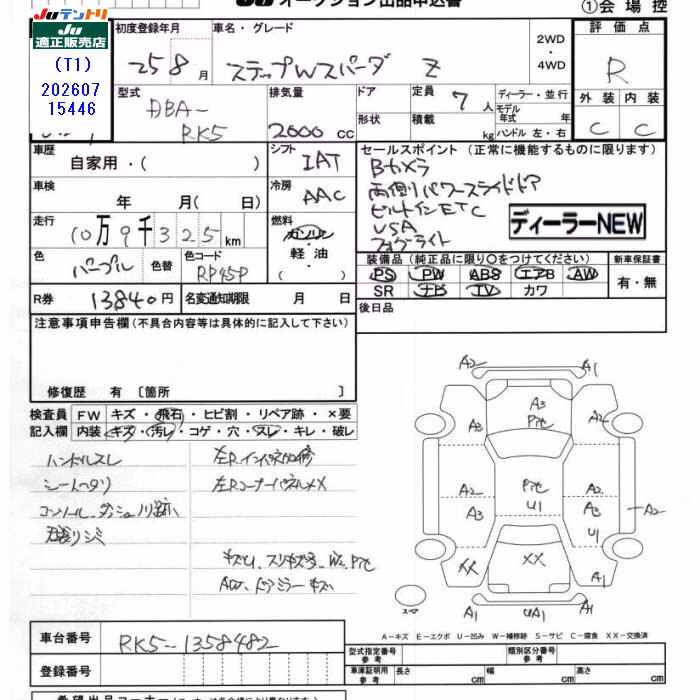 Juテントリ
Ju
適正販売店
(T1)
202607
15446
オークション出品申込書
①会場控
初度登録年月
車名・グレード
評価点
25 8月
ステップWスパーダ Z
2WD
・
4WD
R
型式
排気量
ドア
定員
ディーラー・並行
外装 内装
DBA-
RK5
2000 cc
7人
モデル
年式 年
C C
形状
積載
kg
ハンドル 左・右
車歴
自家用・( )
シフト
IAT
セールスポイント (正常に機能するものに限ります)
Bカメラ
両側パワースライドドア
ビルトインETC
USA
フォグライト
ディーラーNEW
車検
年 月( 日)
冷房
AAC
走行
10万9千325km
燃料
ガソリン
・
軽油
・
( )
色
パープル
色替
色コード
RP45P
装備品 (純正品に限り○をつけてください)
新車保証書
PS PW ABS エアB AW
有・無
SR ナビ TV カワ
R券
13840円
名変通知期限 月 日
後日品
注意事項申告欄(不具合内容等は具体的に記入して下さい)
修復歴 有〔箇所 〕
検査員
記入欄
FW キズ・飛石・ヒビ割・リペア跡・×要
内装 キズ・汚レ・コゲ・穴・スレ・キレ・破レ
ハンドルスレ
シートヘタリ
左Rインパネ加修
左RコーナーパネルXX
キズU、スリキズ多、W2、P化
ドアミラーキズ
A2 A1
A3
P化
A3 A2
P化
U1
A2
A3
A2
A3
A2
U1
XX XX A1
スペア
A1 UA1 A1
A-キズ E-エクボ U-凹み W-補修跡 S-サビ C-腐食 XX-交換済
車台番号
RK5-1358482
登録番号
型式指定番号
参考
類別区分番号
参考
車庫証明用
参考
長さ cm
幅 cm
高さ cm